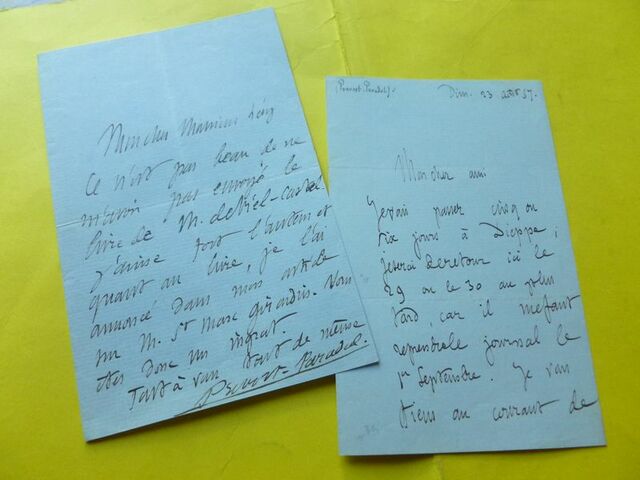 Mon cher Monsieur Lévy
Ce n'est pas beau de ne
m'avoir pas envoyé le
livre de M. de Viel-Castel.
J'aime fort l'auteur et
quant au livre, je l'ai
annoncé dans mon art. de
sur M. St Marc Girardin. Vous
êtes donc un ingrat.
Tout à vous tout de même
Prévost-Paradol.
(Prévost-Paradol)
Dim. 23 août 57.
Mon cher ami
Je vais passer cinq ou
six jours à Dieppe ;
je serai de retour ici le
29 ou le 30 au plus
tard, car il me faut
reprendre le journal le
1er Septembre. Je vous
tiens au courant de